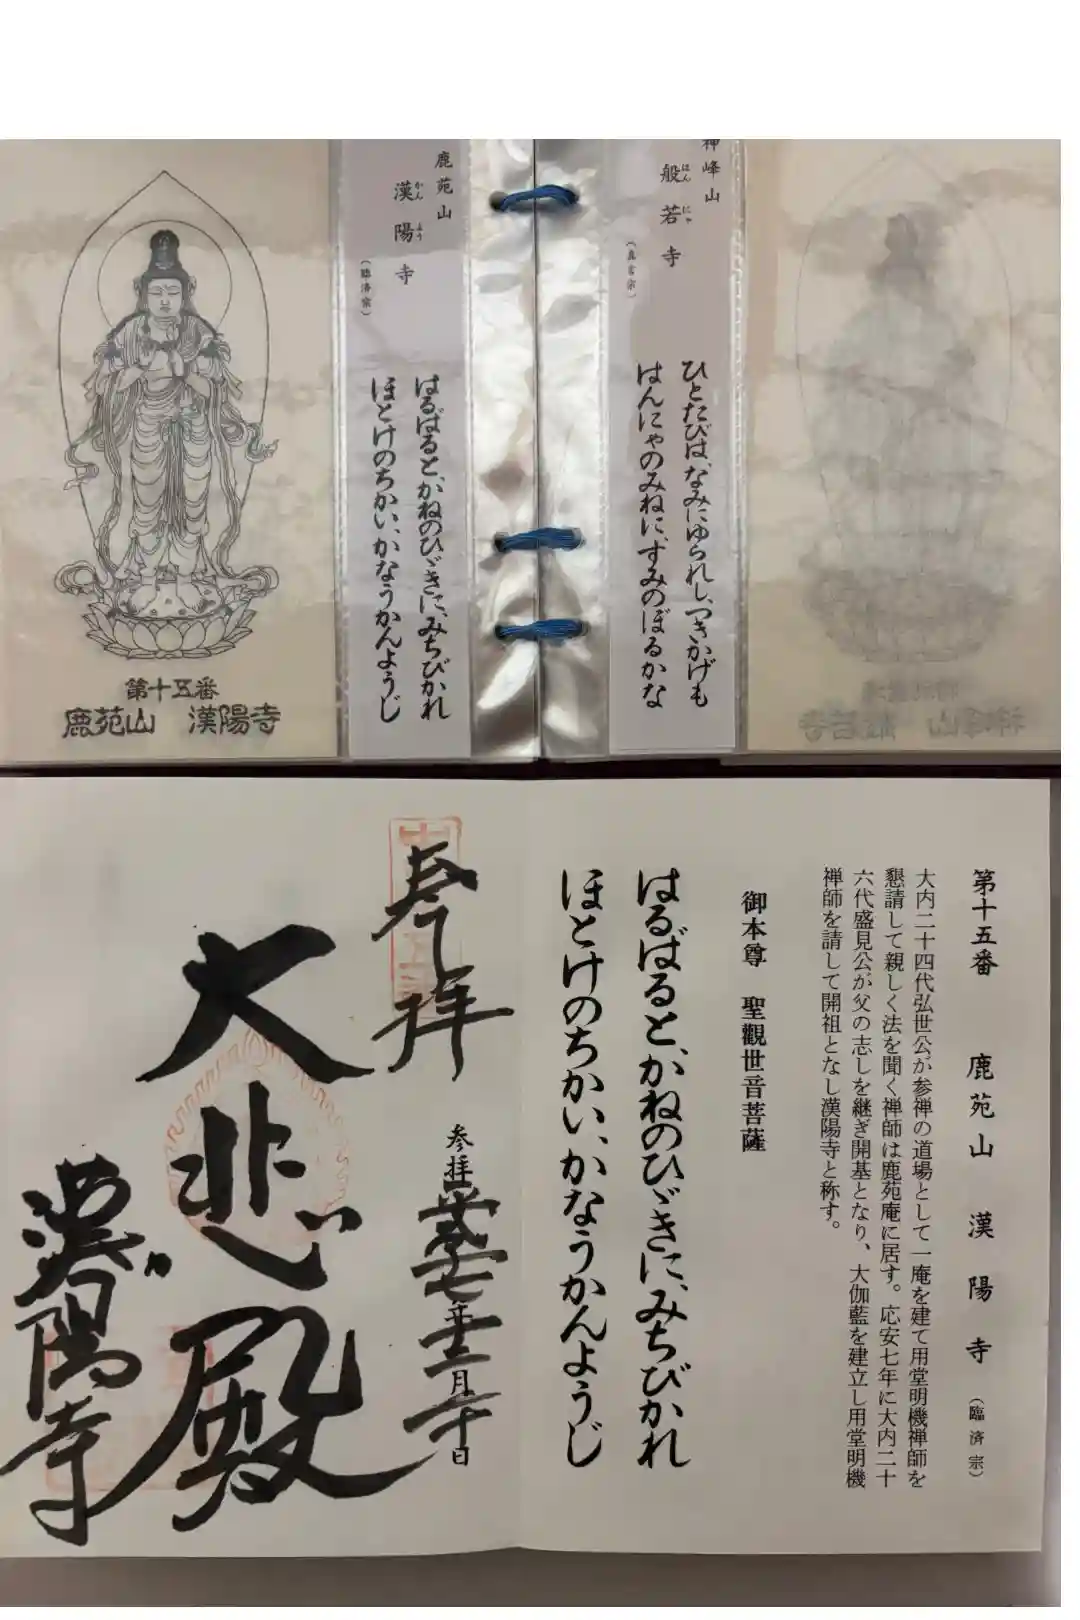 神峰山
般若寺
はんにゃ
（真言宗）
ひとたびは、なみにゆられし、つきかげも
はんにゃのみねに、すみのぼるかな
鹿苑山
漢陽寺
かんよう
（臨済宗）
はるばると、かねのひゞきに、みちびかれ
ほとけのちかい、かなうかんようじ
第十五番
鹿苑山　漢陽寺
第十五番　鹿苑山　漢陽寺（臨済宗）
大内二十四代弘世公が参禅の道場として一庵を建て用堂明機禅師を
懇請して親しく法を聞く禅師は鹿苑庵に居す。応安七年に大内二十
六代盛見公が父の志しを継ぎ開基となり、大伽藍を建立し用堂明機
禅師を請して開祖となし漢陽寺と称す。
御本尊　聖觀世音菩薩
はるばると、かねのひゞきに、みちびかれ
ほとけのちかい、かなうかんようじ
奉拝
参拝
七年
月
日
大悲殿
漢陽寺